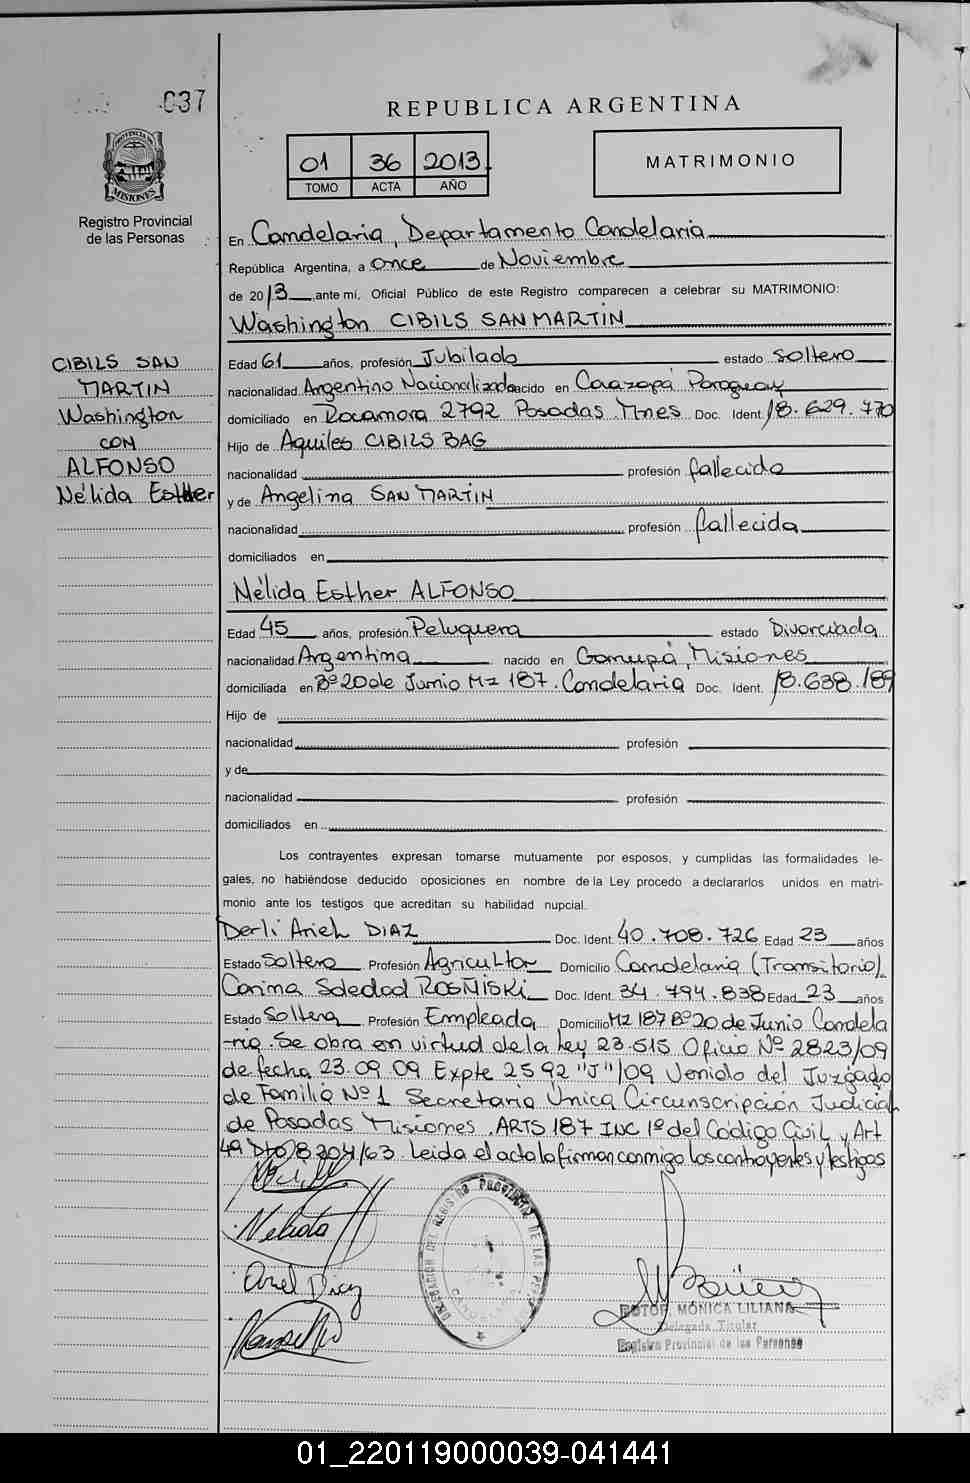 037
REPUBLICA ARGENTINA
01 36 2013
TOMO ACTA AÑO
MATRIMONIO
PROVINCIA DE
MISIONES
Registro Provincial
de las Personas
En Candelaria, Departamento Candelaria
República Argentina, a once de Noviembre
de 2013 ante mí, Oficial Público de este Registro comparecen a celebrar su MATRIMONIO:
Washington CIBILS SAN MARTIN
CIBILS SAN
MARTIN
Washington
CON
ALFONSO
Nélida Esther
Edad 61 años, profesión Jubilado estado Soltero
nacionalidad Argentino Nacionalizado nacido en Caazapá Paraguay
domiciliado en Rocamora 2792 Posadas Mnes Doc. Ident. 18.629.770
Hijo de Aquiles CIBILS BAG
nacionalidad profesión fallecido
y de Angelina SAN MARTIN
nacionalidad profesión fallecida
domiciliados en
Nélida Esther ALFONSO
Edad 45 años, profesión Peluquera estado Divorciada
nacionalidad Argentina nacido en Garupá, Misiones
domiciliada en Bº 20 de Junio Mz 187. Candelaria Doc. Ident. 18.638.189
Hijo de
nacionalidad profesión
y de
nacionalidad profesión
domiciliados en
Los contrayentes expresan tomarse mutuamente por esposos, y cumplidas las formalidades le-
gales, no habiéndose deducido oposiciones en nombre de la Ley procedo a declararlos unidos en matri-
monio ante los testigos que acreditan su habilidad nupcial.
Derli Ariel DIAZ Doc. Ident. 40.708.726 Edad 23 años
Estado Soltero Profesión Agricultor Domicilio Candelaria (Transitorio)
Carina Soledad ROSÑISKI Doc. Ident. 34.794.838 Edad 23 años
Estado Soltera Profesión Empleada Domicilio Mz 187 Bº 20 de Junio Candela
-ria. Se obra en virtud de la Ley 23.515 Oficio Nº 2823/09
de fecha 23.09.09 Expte 2592 "J"/09 Venido del Juzgado
de Familia Nº 1 Secretaria Unica Circunscripción Judicial
de Posadas Misiones. ARTS 187 INC 1º del Código Civil y Art
49 Dto 8204/63. Leida el acta la firman conmigo los contrayentes y testigos
Nelida
Ariel Diaz
REGISTRO PROVINCIAL DE LAS PERSONAS
CANDELARIA
MÓNICA LILIANA
Delegada Titular
Registro Provincial de las Personas
01_220119000039-041441